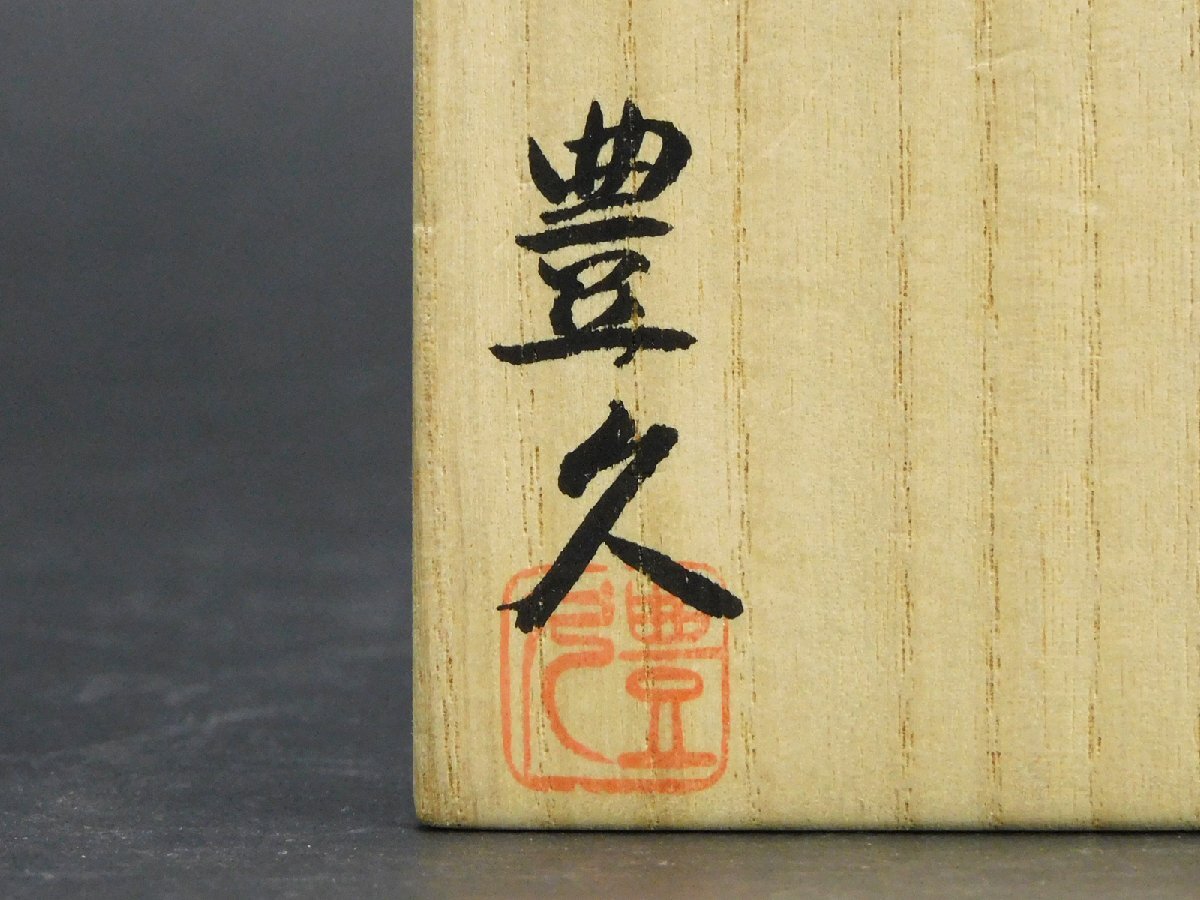 豊久
豊久